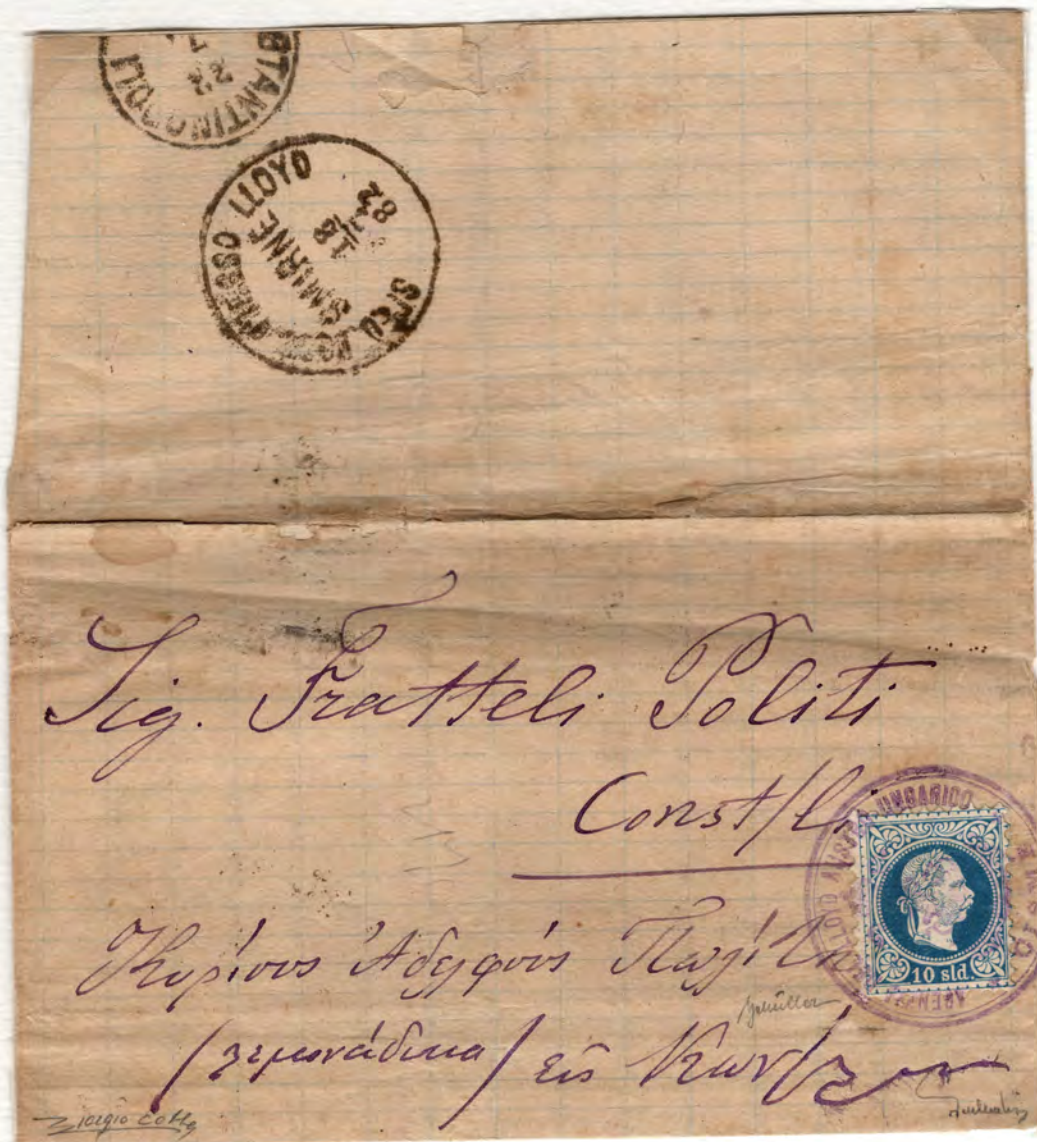 STANTINOPOLI
22
SPED. POST. PRESSO LLOYD
SMIRNE
18
82
Sig. Fratteli Politi
Const/li
LLOYD AUSTRO UNGARICO
10 sld.
Κυρίους Ἀδελφούς Πολίτη
/λεμονάδικα/ εἰς Κων/
Giorgio Colla